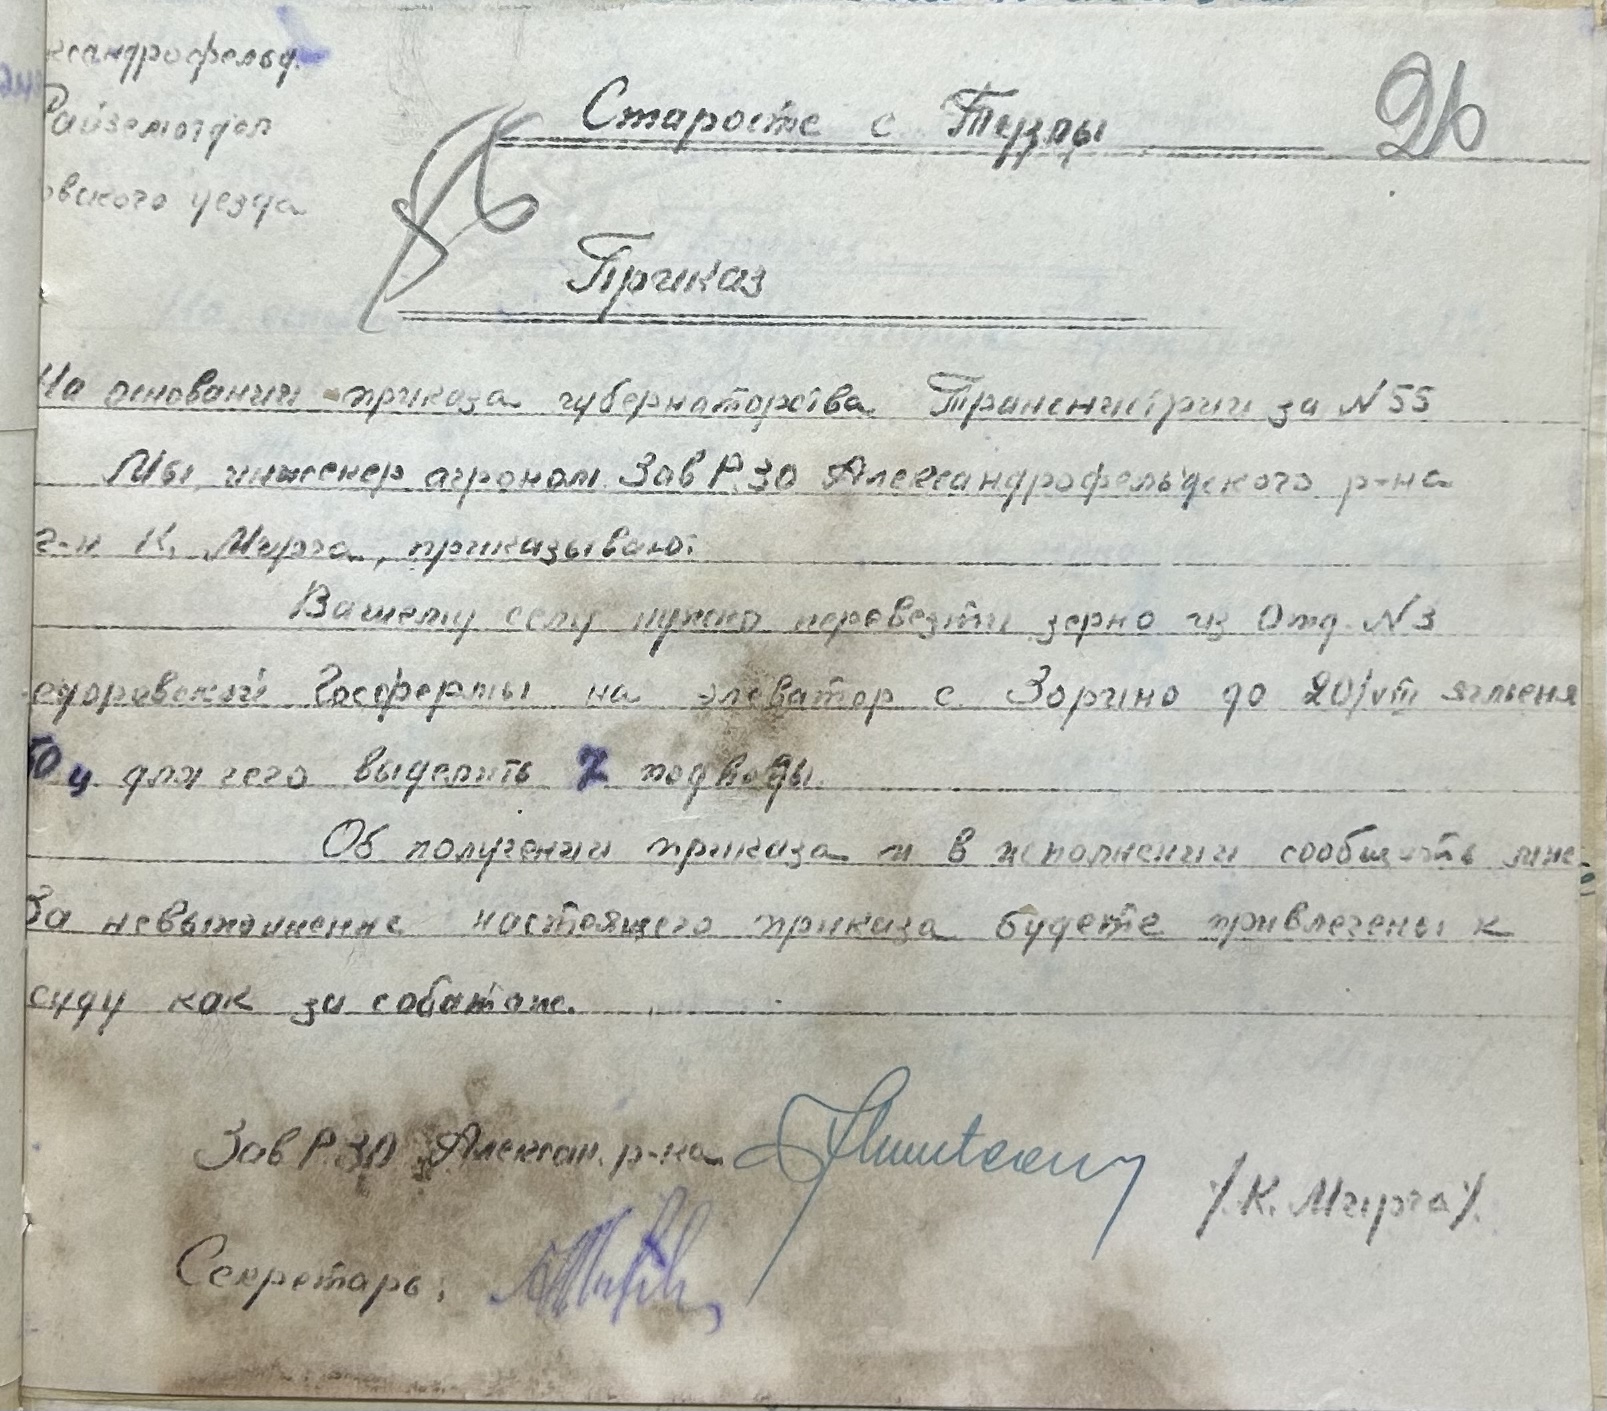 ксандрофельд.
Райземотдел
овского уезда
Старосте с Тузлы
26
Приказ
На основании приказа губернаторства Транснистрии за N 55
Мы, инженер агроном Зав РЗО Александрофельдского р-на
г-н К. Мирча, приказываю:
Вашему селу нужно перевезти зерно из Отд. N 3
едоровской Госфермы на элеватор с. Зорино до 20/VIII ячменя
50 ц для чего выделить 7 подводы.
Об получении приказа и в исполнении сообщить мне.
За невыполнение настоящего приказа будете привлечены к
суду как за собатаж.
Зав РЗО Александ. р-на
/К. Мирча/.
Секретарь: